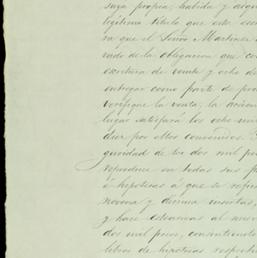 suya propia, habida y adqui
legítimo título que este, escri
ra que el Señor Martinez
vado de la obligacion que con
escritura de veinte y ocho de
entregar como parte de prec
verifique la venta; la accion
lugar satisfará los ocho mil
diez por ellos convenidos. S
guridad de los dos mil pes
responderá en todas sus p
é hipotecas á que se refier
novena y décima
y hace estensivas al nuevo
dos mil pesos, consintiendo
libros de hipotecas respecti